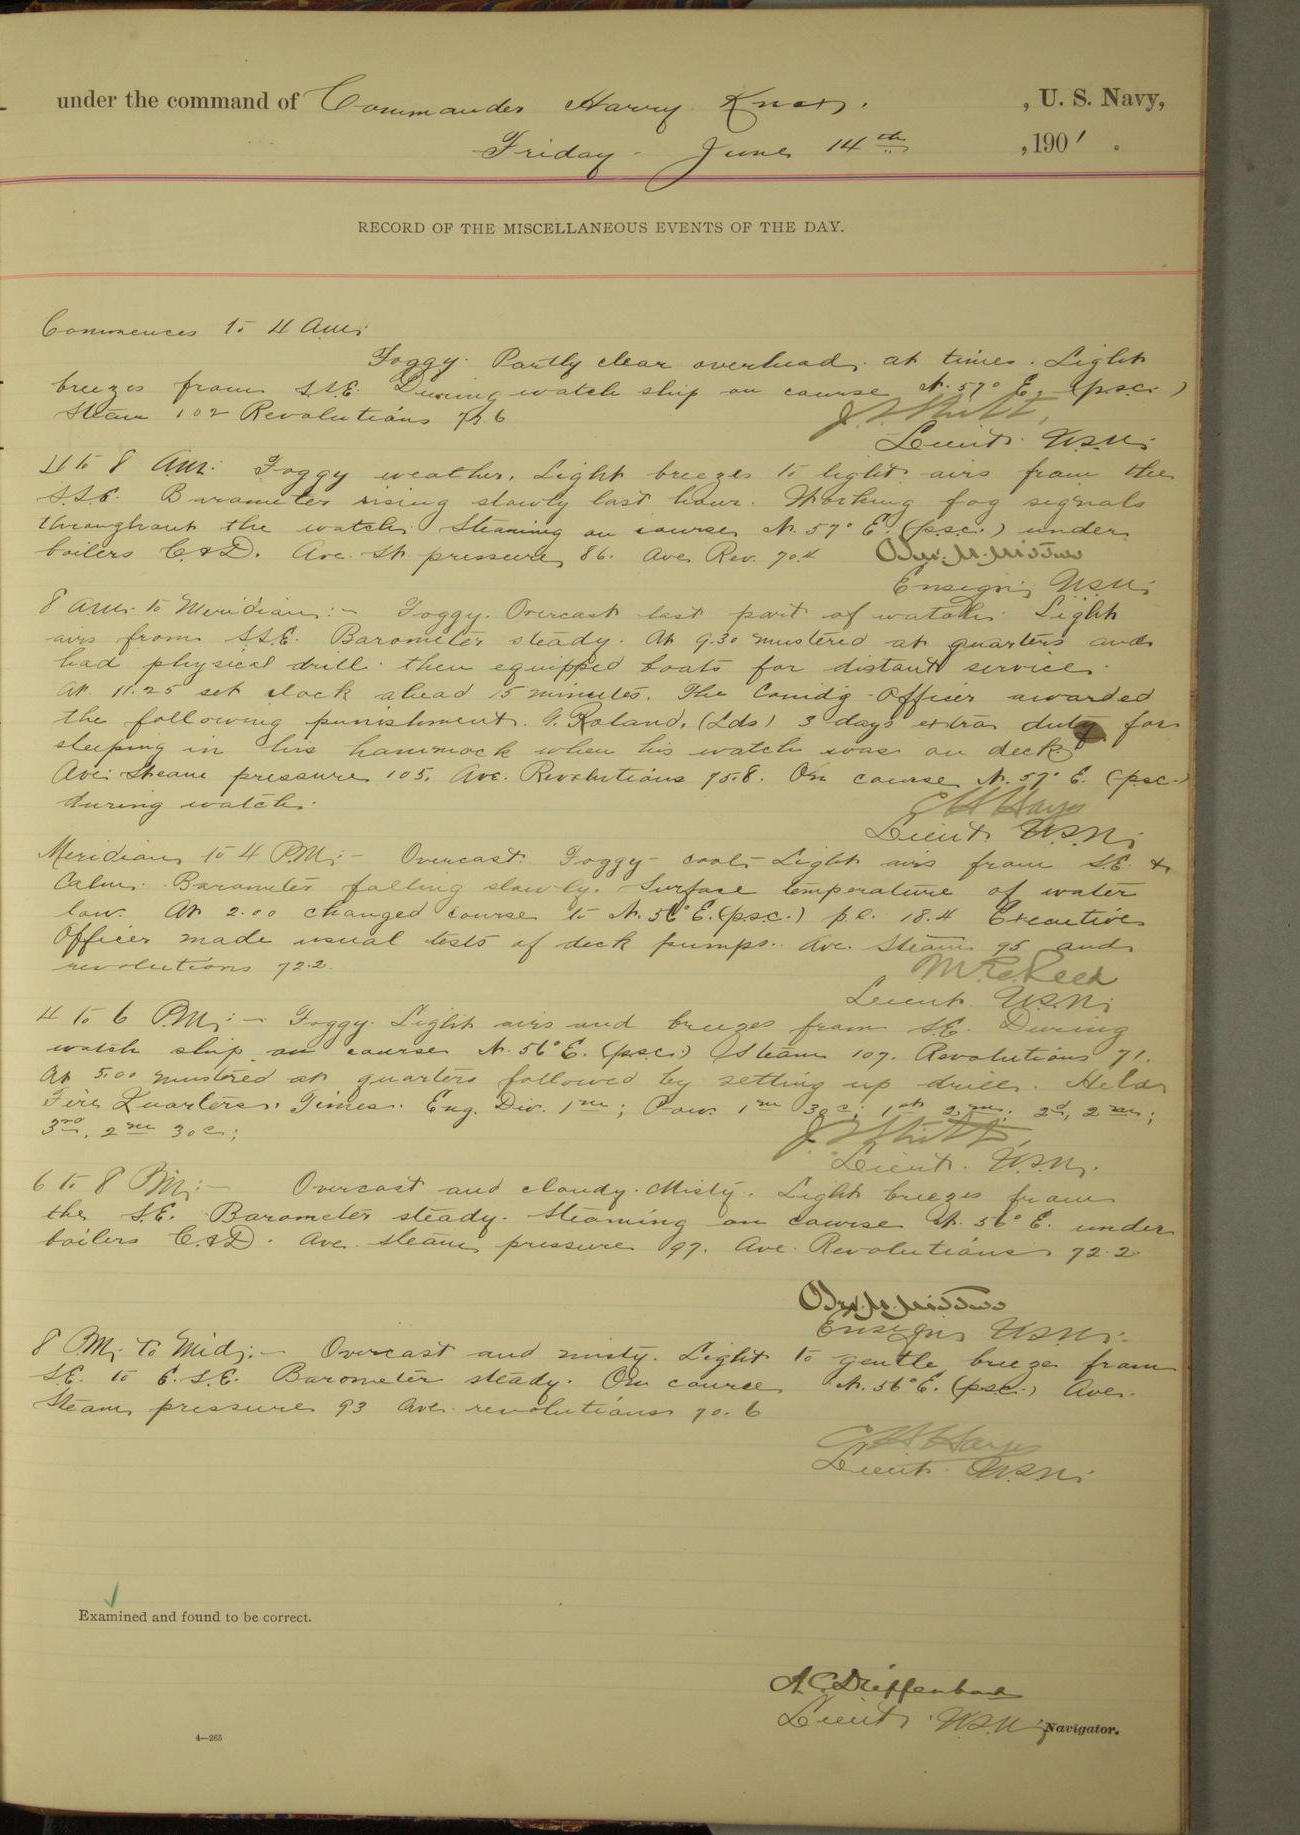 under the command of Commander Harry Knox, , U. S. Navy,
Friday - June 14th , 1901 .
RECORD OF THE MISCELLANEOUS EVENTS OF THE DAY.
Commences to 4 A.M.
Foggy. Partly clear overhead at times. Light
breezes from S.S.E. During watch ship on course N. 57° E. (p.s.c.)
Steam 102 Revolutions 75.6
Lieut. U.S.N.
4 to 8 A.M. Foggy weather. Light breezes to light airs from the
S.S.E. Barometer rising slowly last hour. Working fog signals
throughout the watch. Steaming on course N. 57° E. (p.s.c.) under
boilers C. & D. Ave. St. pressure 86. Ave Rev. 70.4
Ensign, U.S.N.
8 A.M. to Meridian:- Foggy. Overcast last part of watch. Light
airs from S.S.E. Barometer steady. At 9.30 mustered at quarters and
had physical drill then equipped boats for distant service.
At 11.25 set clock ahead 15 minutes. The Comdg. Officer awarded
the following punishment. G. Roland, (Lds) 3 days extra duty for
sleeping in his hammock when his watch was on deck.
Ave. Steam pressure 105. Ave. Revolutions 75.8. On course N. 57° E. (p.s.c.)
during watch.
Lieut U.S.N.
Meridian to 4 P.M.:- Overcast. Foggy - cool - Light airs from S.E. &
Calm. Barometer falling slowly. Surface temperature of water
low. At 2.00 changed course to N. 56° E. (p.s.c.) p.l. 18.4 Executive
Officer made usual tests of deck pumps. Ave. Steam 95 and
revolutions 72.2.
Lieut. U.S.N.
4 to 6 P.M.:- Foggy. Light airs and breezes from S.E. During
watch ship on course N. 56° E. (p.s.c.) Steam 107. Revolutions 71.
At 5.00 mustered at quarters followed by setting up drill. Held
Fire Quarters. Times. Eng. Div. 1m; Pow. 1m 30s; 1st 2m; 2d, 2m;
3rd, 2m 30s;
Lieut. U.S.N.
6 to 8 P.M.:- Overcast and cloudy. Misty. Light breezes from
the S.E. Barometer steady. Steaming on course N. 56° E. under
boilers C. & D. Ave. steam pressure 97. Ave. Revolutions 72.2
Ensign U.S.N.
8 P.M. to Mid:- Overcast and misty. Light to gentle breeze from
S.E. to E.S.E. Barometer steady. On course N. 56° E. (p.s.c.) Ave.
Steam pressure 93 Ave. revolutions 70.6
Lieut. U.S.N.
Examined and found to be correct.
Lieut. U.S.N. Navigator.
4—265